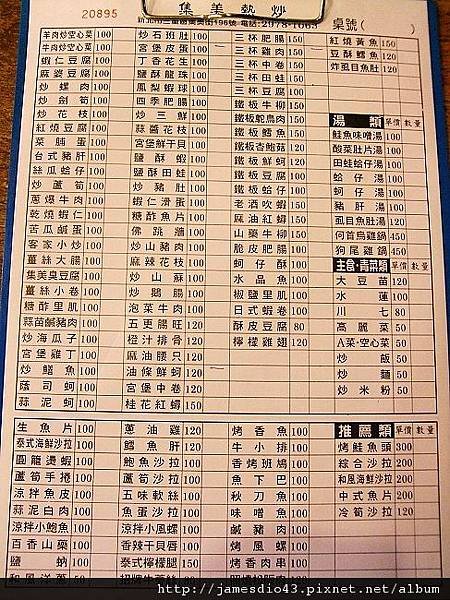 集美熱炒
20895
桌號(
)
羊肉炒空心菜 100
牛肉炒空心菜 100
蝦仁豆腐 100
麻婆豆腐 100
炒螺肉 100
炒劍筍 100
炒花枝 100
紅燒豆腐 100
菜脯蛋 100
台式豬肝 100
絲瓜蛤仔 100
炒蘆筍 100
蔥爆牛肉 100
乾燒蝦仁 100
苦瓜鹹蛋 100
客家小炒 100
薑絲大腸 100
集美臭豆腐 100
薑絲小卷 100
糖醋里肌 100
蒜苗鹹豬肉 100
炒海瓜子 100
宮堡雞丁 100
炒鱔魚 100
蔭司蚵 100
蒜泥蚵 100
炒石班肚 100
宮堡皮蛋 100
丁香花生 100
鹽酥龍珠 100
鳳梨蝦球 100
四季肥腸 100
炒三鮮 100
蒜醬花枝 100
宮堡鮮干貝 100
鹽酥蝦 100
鹽酥田蛙 100
炒豬肚 100
蝦仁滑蛋 100
糖醋魚片 100
佛跳牆 100
炒山豬肉 100
麻辣花枝 100
炒山蘇 100
炒鵝腸 100
泡菜牛肉 100
五更腸旺 120
橙汁排骨 120
麻油腰只 120
油條鮮蚵 120
宮堡中卷 120
桂花紅蟳 150
三杯肥腸 150
三杯雞肉 150
三杯中卷 150
三杯田蛙 150
三杯豆腐 100
鐵板牛柳 150
鐵板鴕鳥肉 150
鐵板鱈魚 150
鐵板杏鮑菇 120
鐵板鮮蚵 120
鐵板豆腐 100
鐵板蛤仔 100
老酒吹蝦 150
麻油紅蟳 150
山藥牛柳 150
脆皮肥腸 100
蚵仔酥 100
水晶魚 100
椒鹽里肌 100
日式蝦卷 100
酥皮豆腐 80
檸檬雞翅 120
紅燒黃魚 150
豆酥鱈魚 150
炸虱目魚肚 120
湯類 單價 數量
鮭魚味噌湯 100
酸菜肚片湯 100
田蛙蛤仔湯 100
蛤仔湯 100
蚵仔湯 100
豬肝湯 100
虱目魚肚湯 120
何首烏雞鍋 450
狗尾雞鍋 450
主食‧青菜類 單價 數量
大豆苗 120
水蓮 100
川七 80
高麗菜 50
A菜‧空心菜 50
炒飯 50
炒麵 50
炒米粉 50
生魚片 100
泰式海鮮沙拉 100
圓籠燙蝦 100
蘆筍手捲 100
涼拌魚皮 100
蒜泥白肉 100
涼拌小鮑魚 100
百香山藥 100
鹽蚋 100
和風洋蔥 50
蔥油雞 120
鱈魚肝 120
鮑魚沙拉 100
蘆筍沙拉 100
五味軟絲 100
魚蛋沙拉 100
涼拌小風螺 100
香辣干貝唇 100
泰式檸檬腿 150
烤香魚 100
牛小排 100
香烤班鳩 100
魚下巴 100
秋刀魚 100
味噌魚 100
鹹豬肉 100
烤風螺 100
烤香肉串 100
推薦類 單價 數量
烤鮭魚頭 300
綜合沙拉 200
和風海鮮沙拉 200
中式魚片 200
冷筍沙拉 120
http://jamesdio43.pixnet.net/album